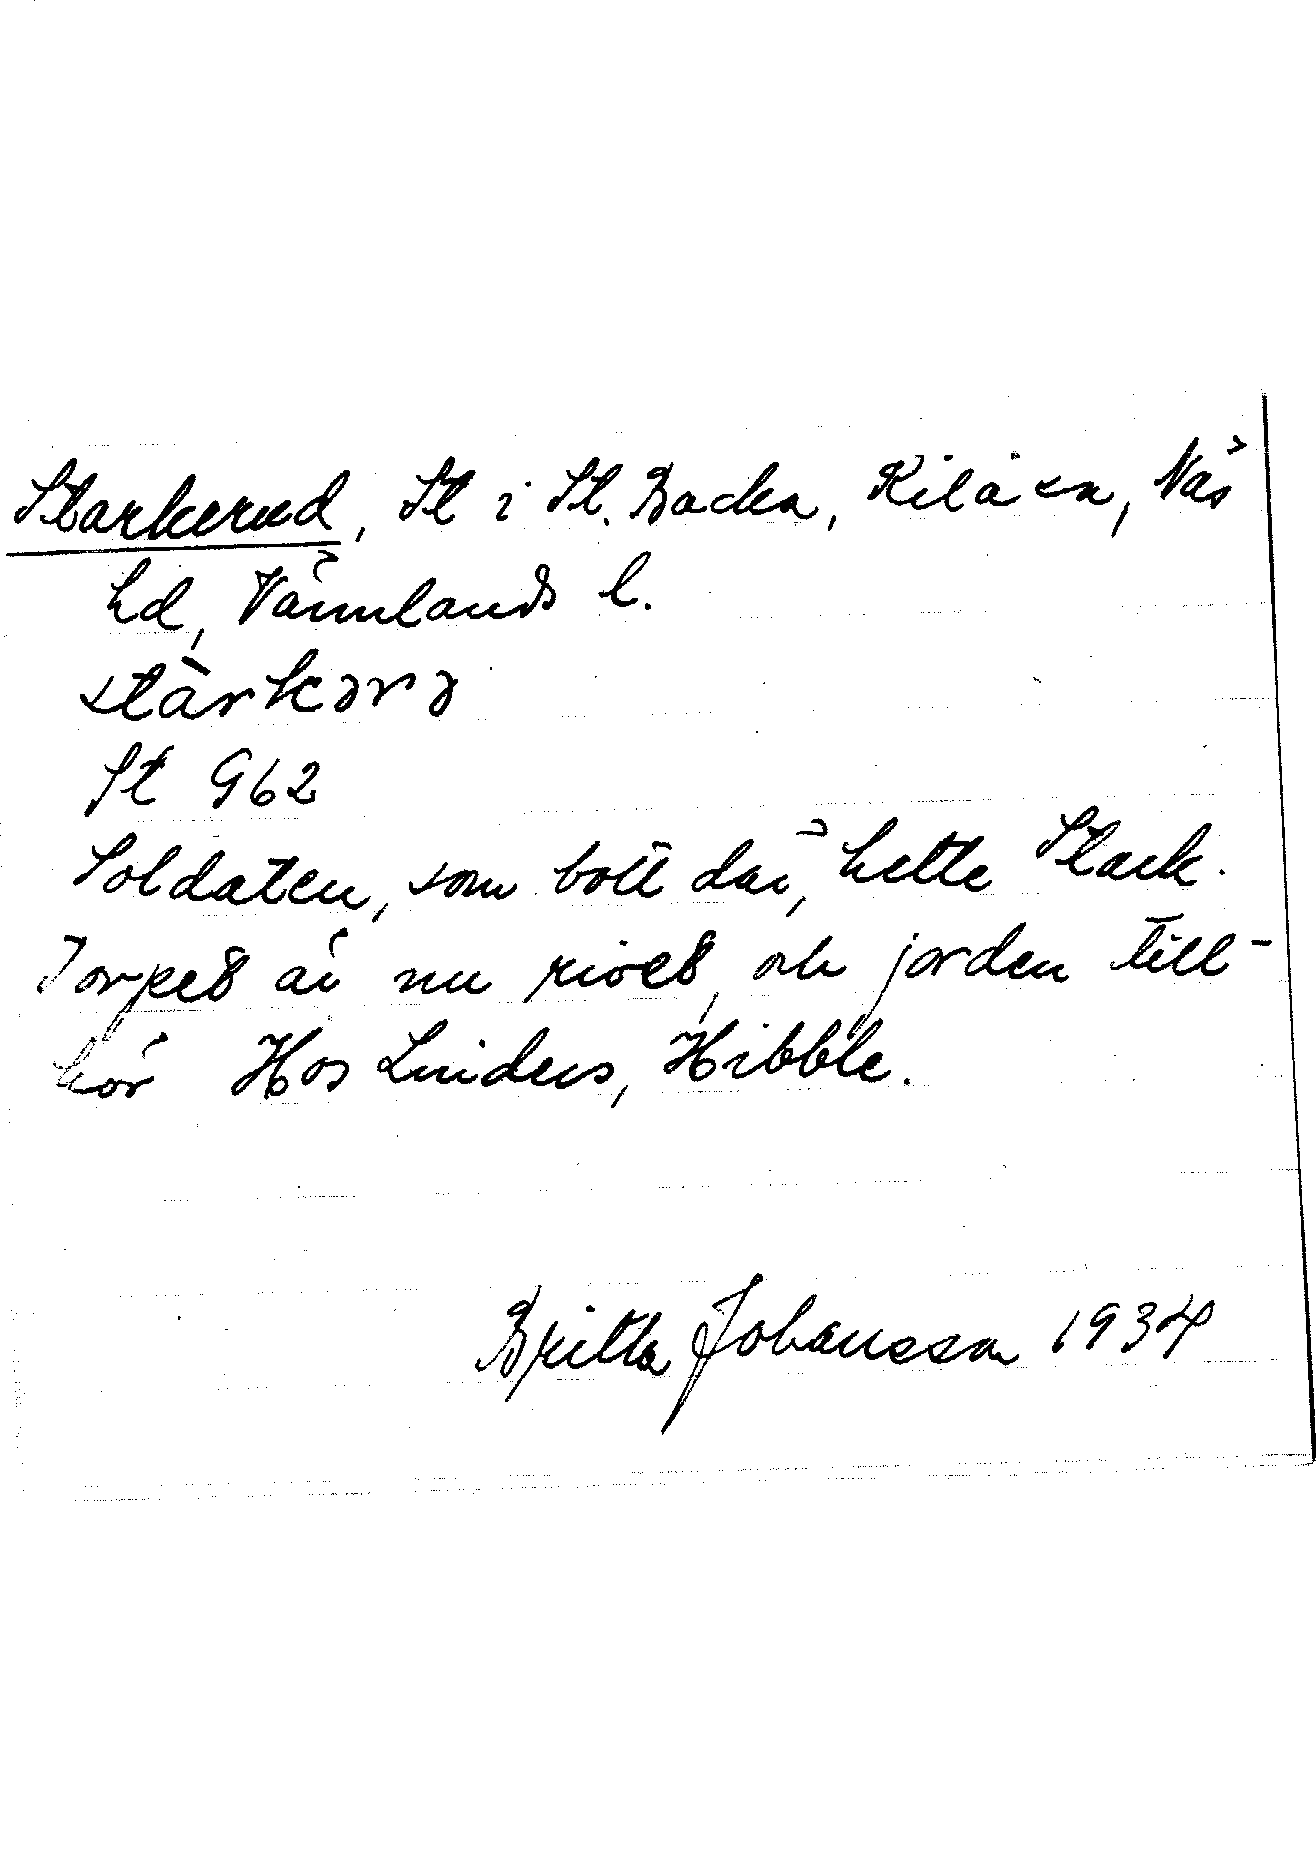 Starkerud, St i St. Backa, Kila sn, Näs
hd, Värmlands l.
stàrkərə
St G62
Soldaten, som bott där, hette Stark.
Torpet är nu rivet, och jorden till-
hör Hos Linders, Hibble.
Britta Johansson 1934